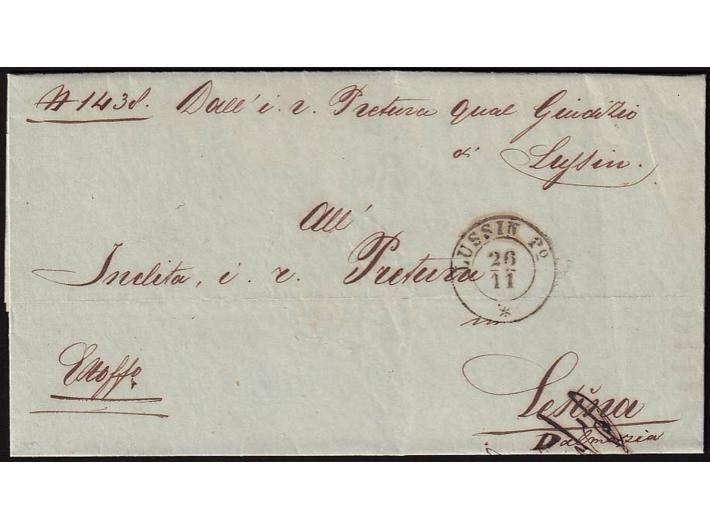 N 1438. Dall' i. r. Pretura qual Giudizio
di Lussin.
All'
Inclita, i. r. Pretura
LUSSIN Pº
26
11
in
Exoffo
Lesina
Dalmazia